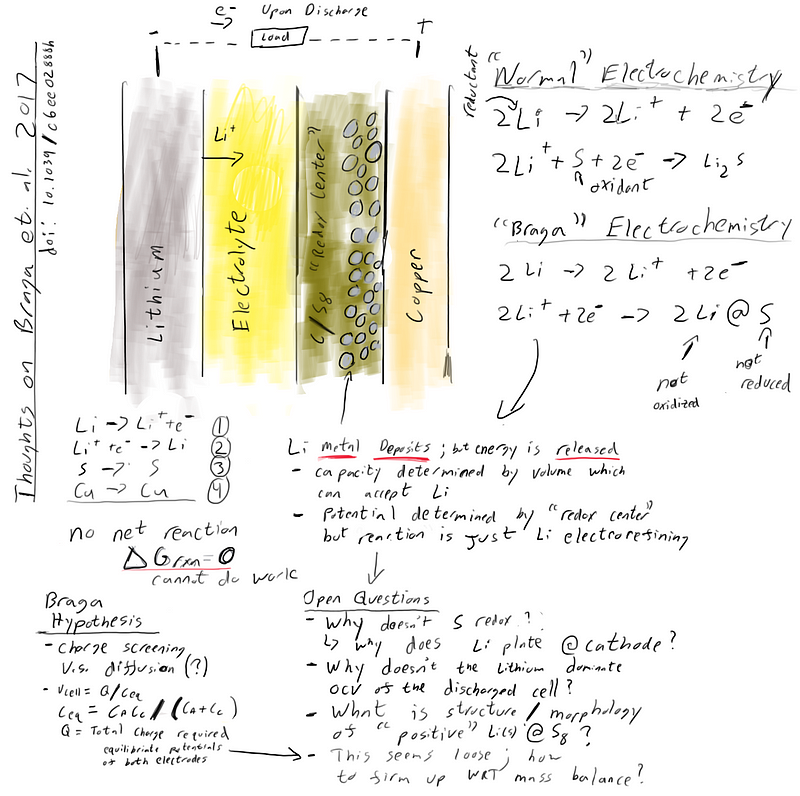 Thoughts on Braga et. al. 2017
doi: 10.1039/c6ee02888h
e⁻ Upon Discharge
→
-
Load
+
Li⁺
→
Lithium
Electrolyte
C/S8 "Redox Center"
Copper
"Normal" Electrochemistry
reductant
2Li → 2Li⁺ + 2e⁻
2Li⁺ + S + 2e⁻ → Li₂S
oxidant
"Braga" Electrochemistry
2 Li → 2 Li⁺ + 2e⁻
2Li⁺ + 2e⁻ → 2 Li @ S
not
oxidized
not
reduced
Li → Li⁺ + e⁻ ①
Li⁺ + e⁻ → Li ②
S → S ③
Cu → Cu ④
no net reaction
ΔGrxn = 0
cannot do work
Li metal Deposits; but energy is released
- capacity determined by volume which
can accept Li
- Potential determined by "redox center"
but reaction is just Li electrorefining
Braga
Hypothesis
- Charge screening
v.s. diffusion (?)
- Vcell = Q/Ceq
Ceq = CACc / (CA+Cc)
Q = Total charge required
equilibriate potentials
of both electrodes
Open Questions
- Why doesn't S redox?
↳ why does Li plate @ cathode?
- Why doesn't the Lithium dominate
OCV of the discharged cell?
- What is structure/morphology
of "positive" Li(s) @ S8?
- This seems loose; how
to firm up WRT mass balance?